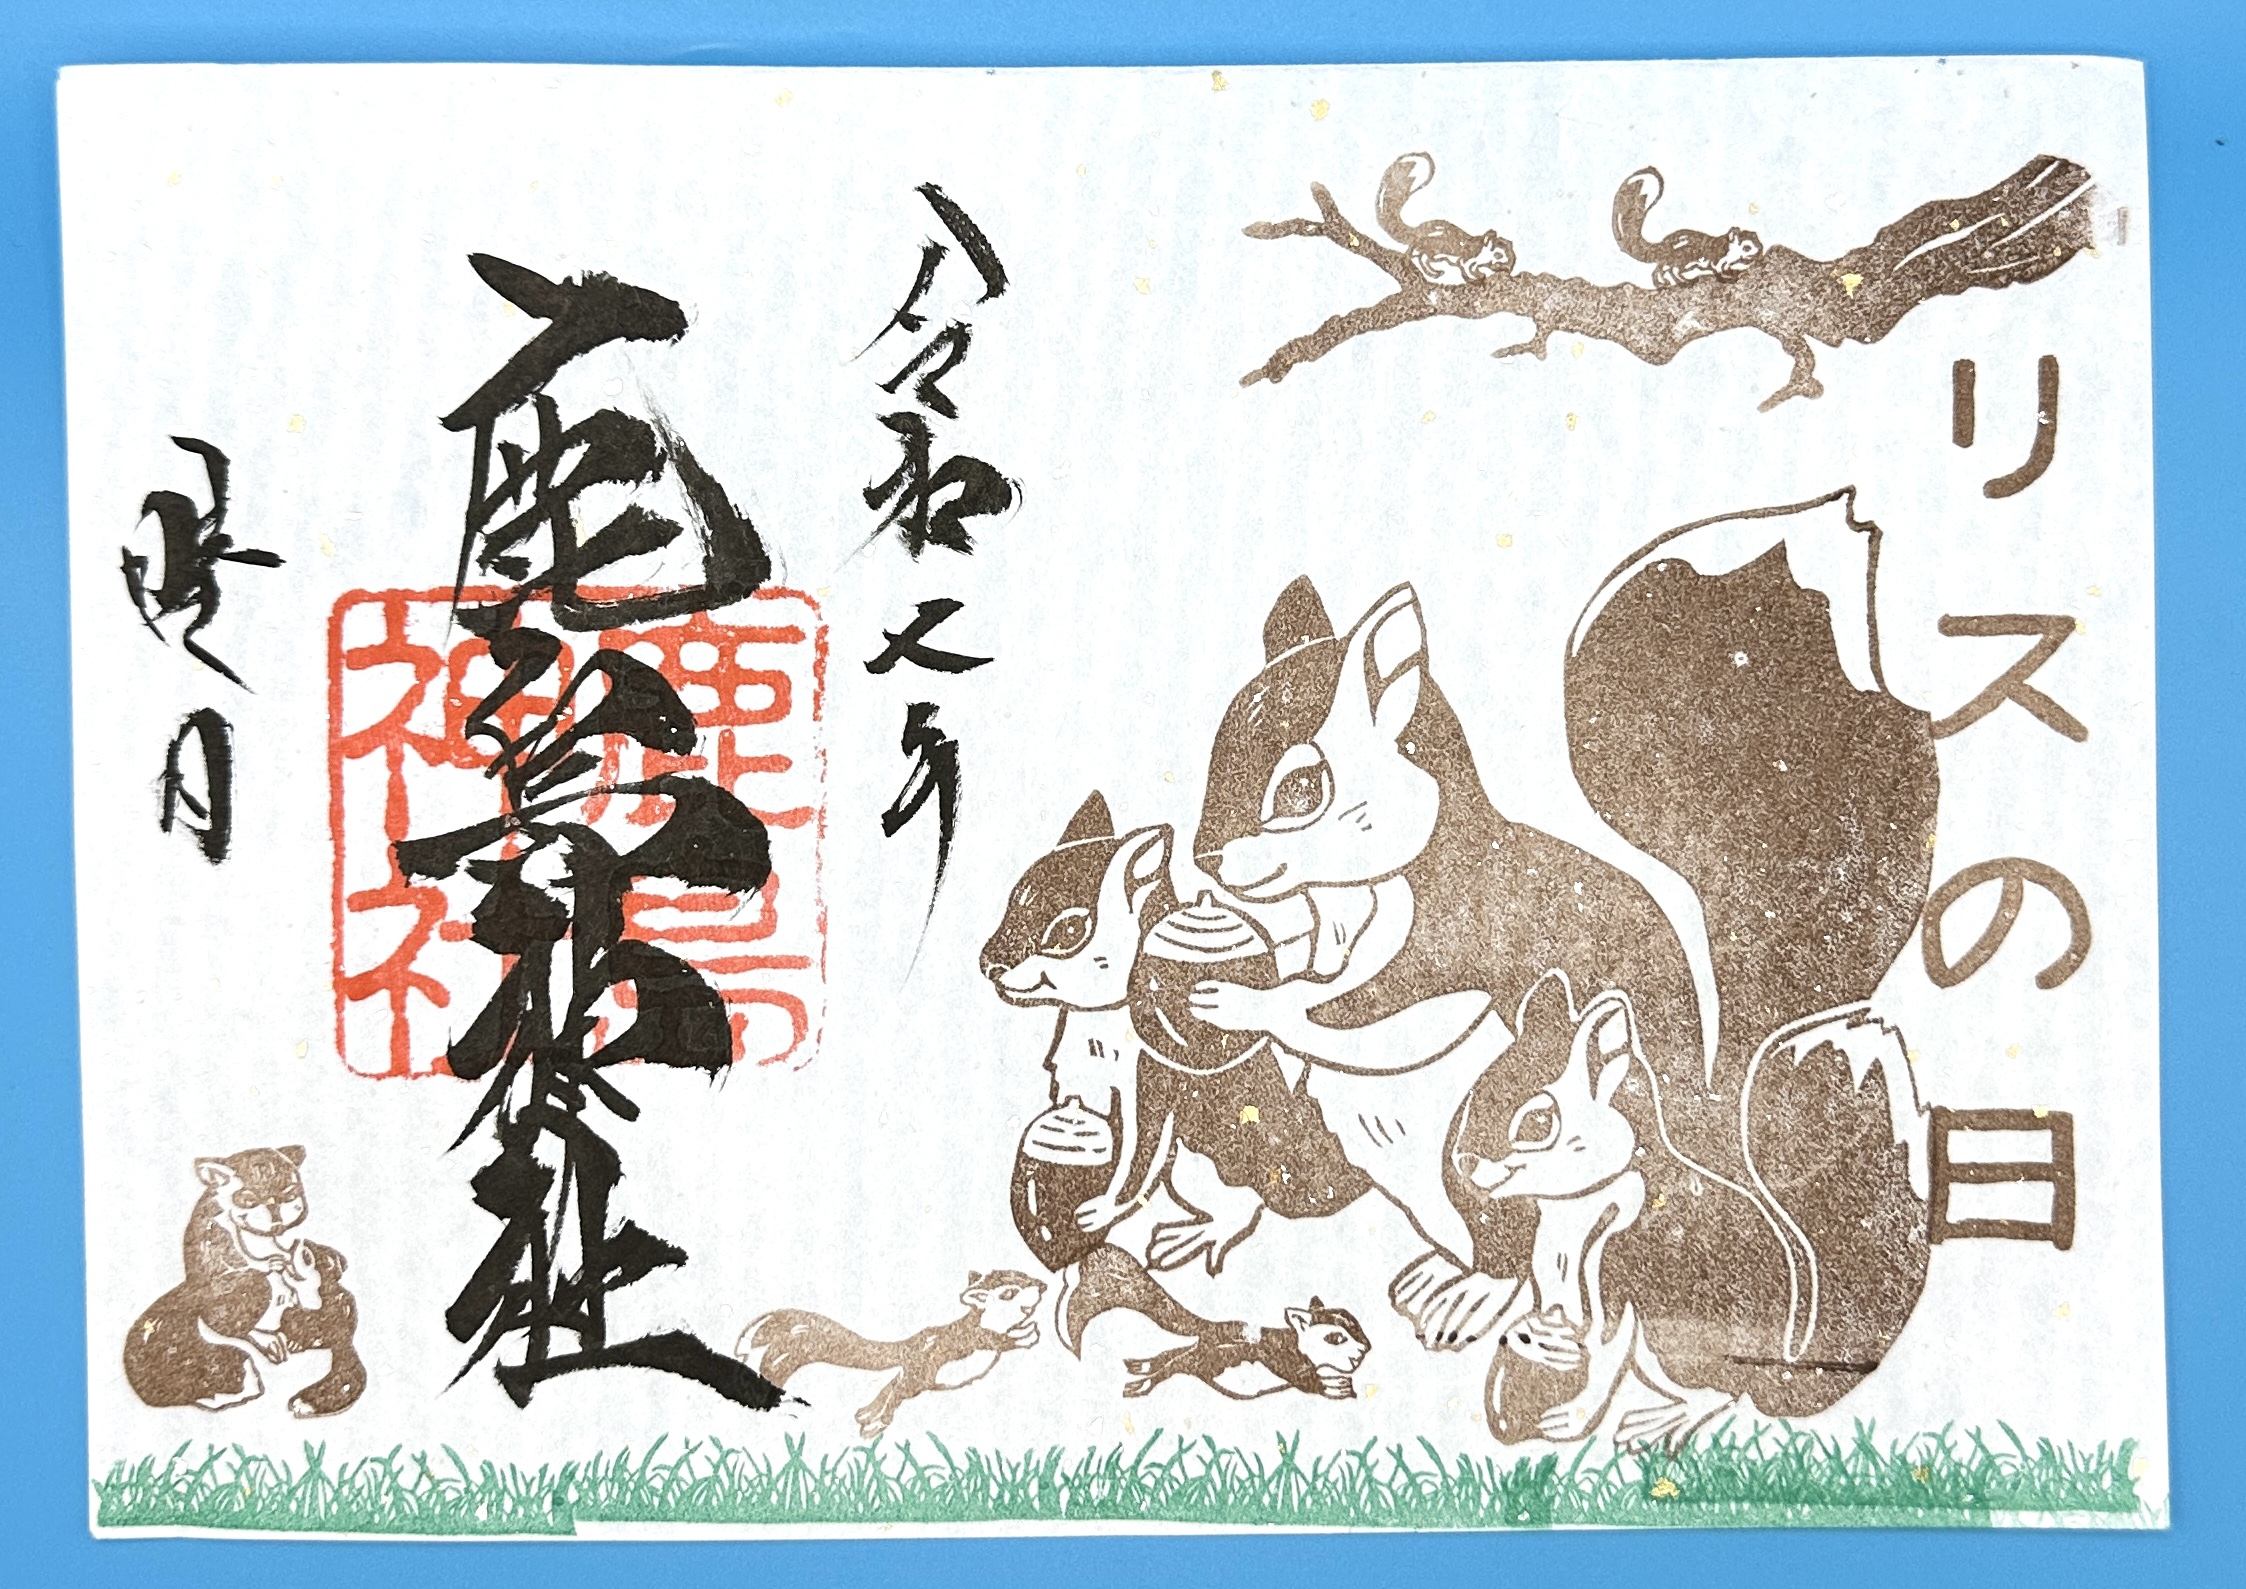 リスの日
令和 年
鹿島神社
鹿島
神社
睦月